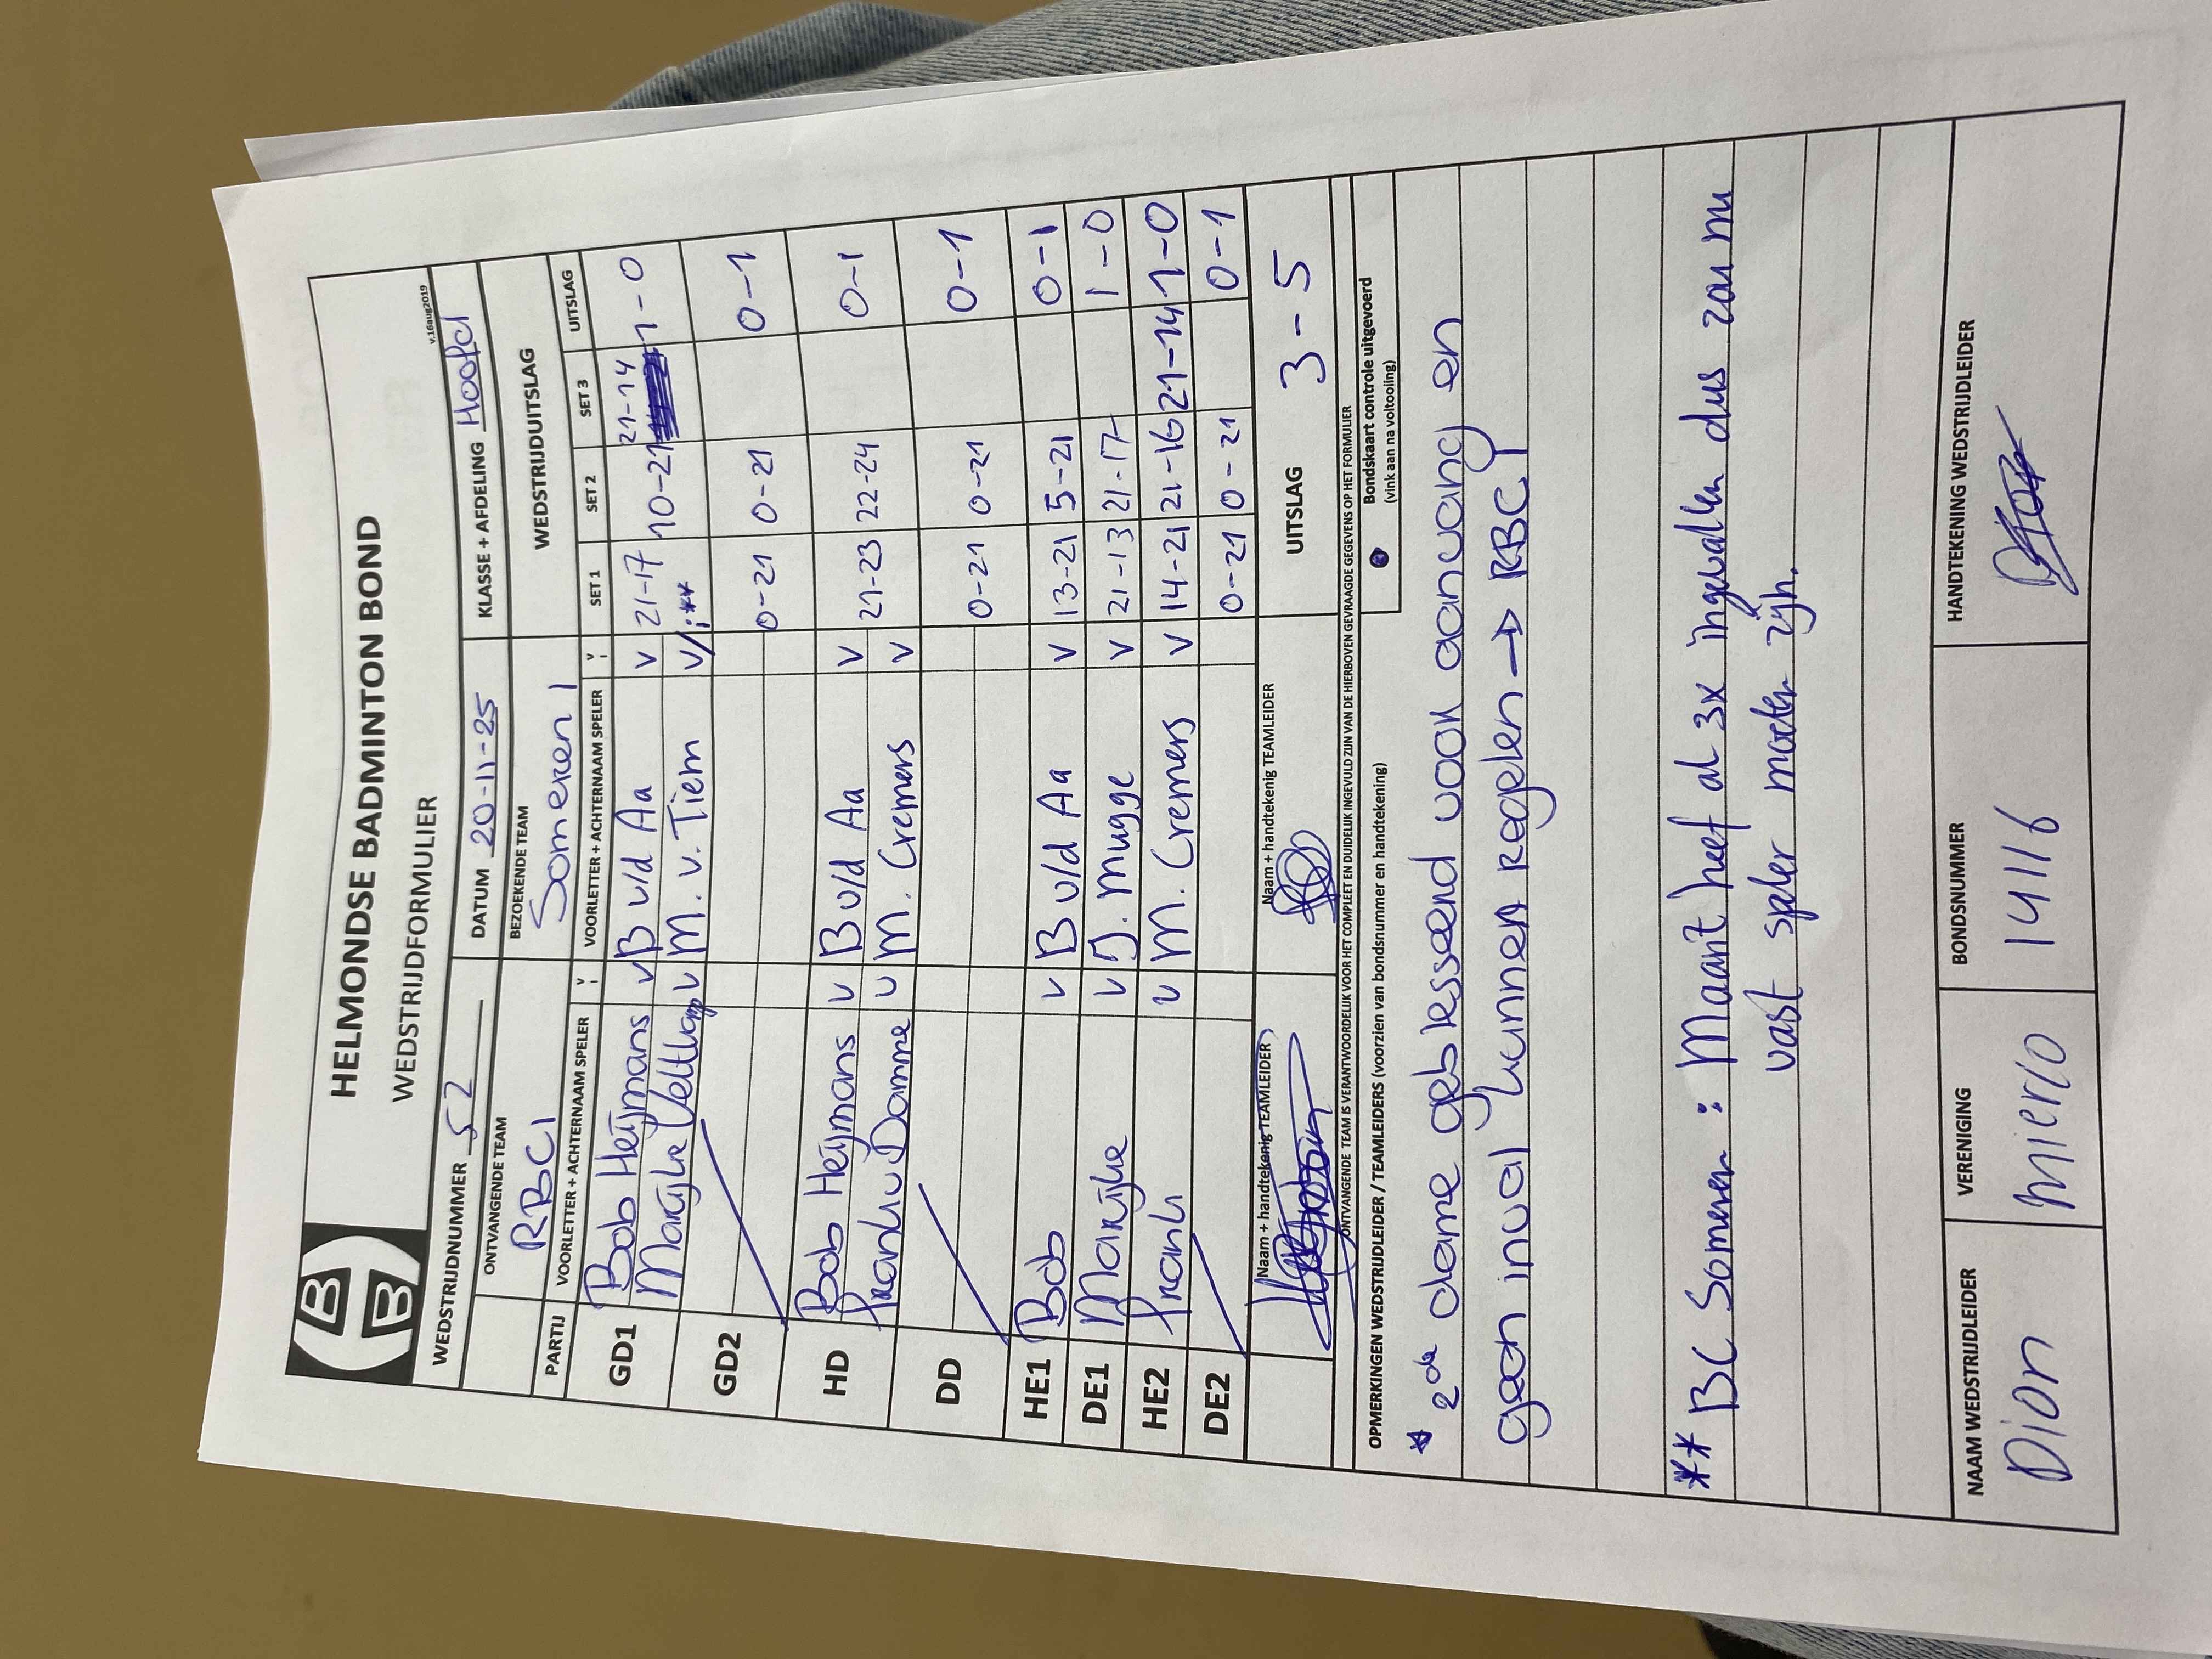 HELMONDSE BADMINTON BOND
WEDSTRIJDFORMULIER
v.16aug2019
WEDSTRIJDNUMMER 52 DATUM 20-11-25 KLASSE + AFDELING Hoofd
ONTVANGENDE TEAM BEZOEKENDE TEAM WEDSTRIJDUITSLAG
RBC1 Someren 1
PARTIJ VOORLETTER + ACHTERNAAM SPELER V I VOORLETTER + ACHTERNAAM SPELER V I SET 1 SET 2 SET 3 UITSLAG
GD1 Bob Heijmans v B v/d Aa v 21-17 10-21 21-14 1-0
Marijke Veltkamp v M. v. Tiem v/i**
GD2 0-21 0-21 0-1
HD Bob Heijmans v B v/d Aa v 21-23 22-24 0-1
Frank v Damme v M. Cremers v
DD 0-21 0-21 0-1
HE1 Bob v B v/d Aa v 13-21 5-21 0-1
DE1 Marijke v J. Mugge v 21-13 21-17 1-0
HE2 Frank v M. Cremers v 14-21 21-16 21-14 1-0
DE2 0-21 0-21 0-1
Naam + handtekenig TEAMLEIDER Naam + handtekenig TEAMLEIDER UITSLAG 3-5
ONTVANGENDE TEAM IS VERANTWOORDELIJK VOOR HET COMPLEET EN DUIDELIJK INGEVULD ZIJN VAN DE HIERBOVEN GEVRAAGDE GEGEVENS OP HET FORMULIER
OPMERKINGEN WEDSTRIJDLEIDER / TEAMLEIDERS (voorzien van bondsnummer en handtekening) Bondskaart controle uitgevoerd
(vink aan na voltooiing)
* 2de dame geblesseerd voor aanvang en
geen inval kunnen regelen → RBC1
** BC Someren : Maart heef al 3x ingevallen dus zou nu
vast speler moeten zijn.
NAAM WEDSTRIJDLEIDER VERENIGING BONDSNUMMER HANDTEKENING WEDSTRIJDLEIDER
Dion Mierlo 141116